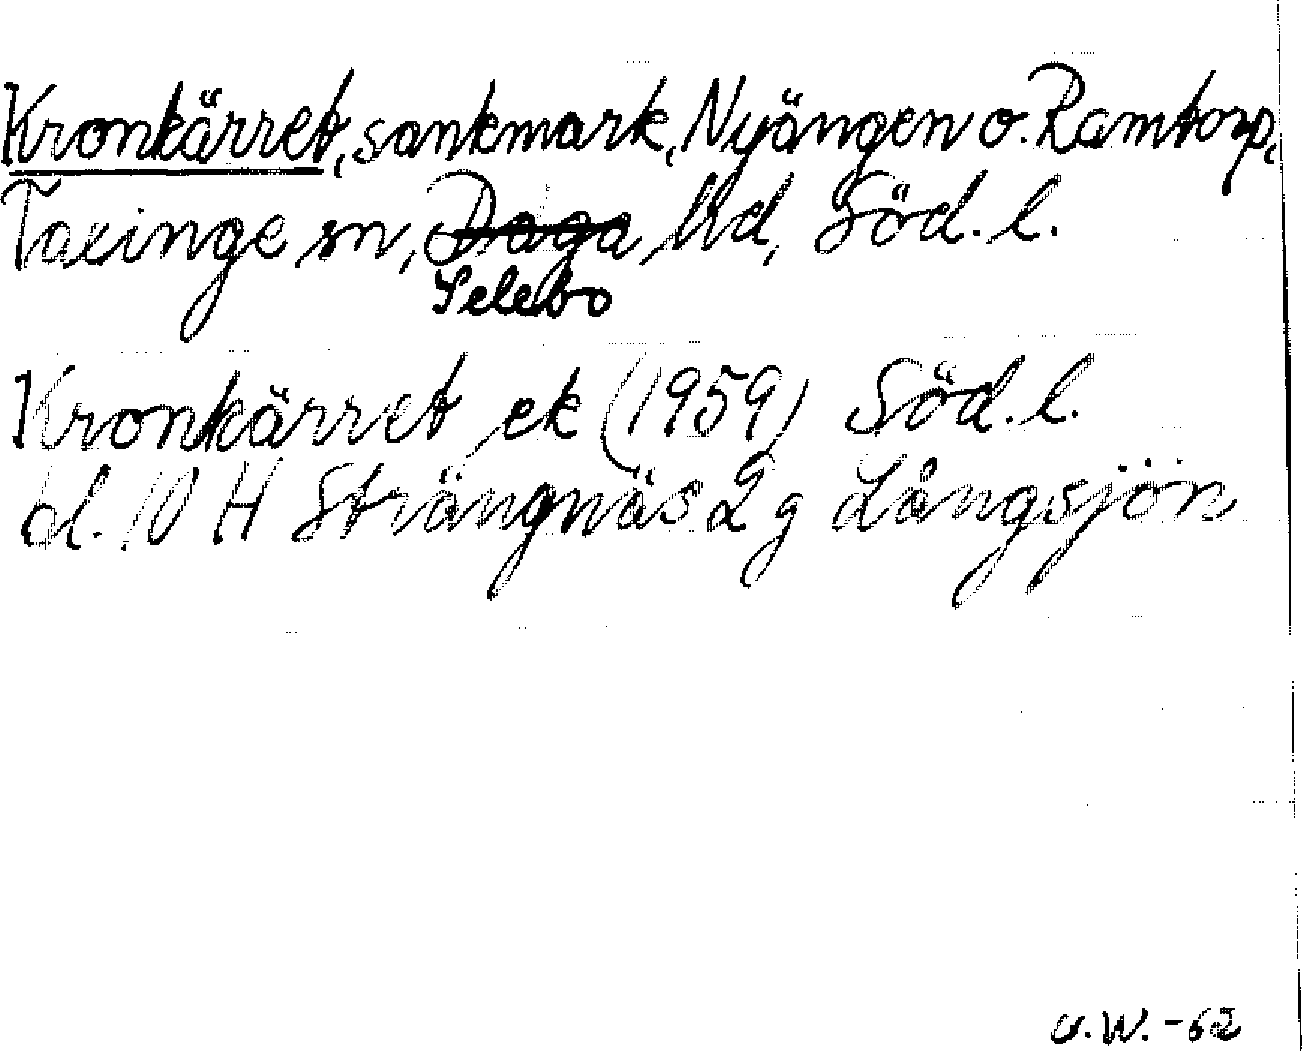 Kronkärret, sankmark, Nyängen o. Ramtorp,
Taxinge sn, Daga hd, Söd. l.
Selebo
Kronkärret ek (1959) Söd. l.
bl. 10 H Strängnäs 2 g Långsjön
W. -62